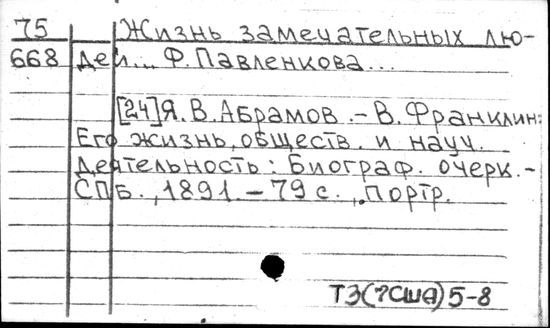 75 Жизнь замечательных лю-
668 дей... Ф. Павленкова...
[24] Я. В. Абрамов. - В. Франклин:
Его жизнь, обществ. и науч.
деятельность: Биограф. очерк. -
СПБ., 1891. - 79 с., портр.
Т3(7США)5-8